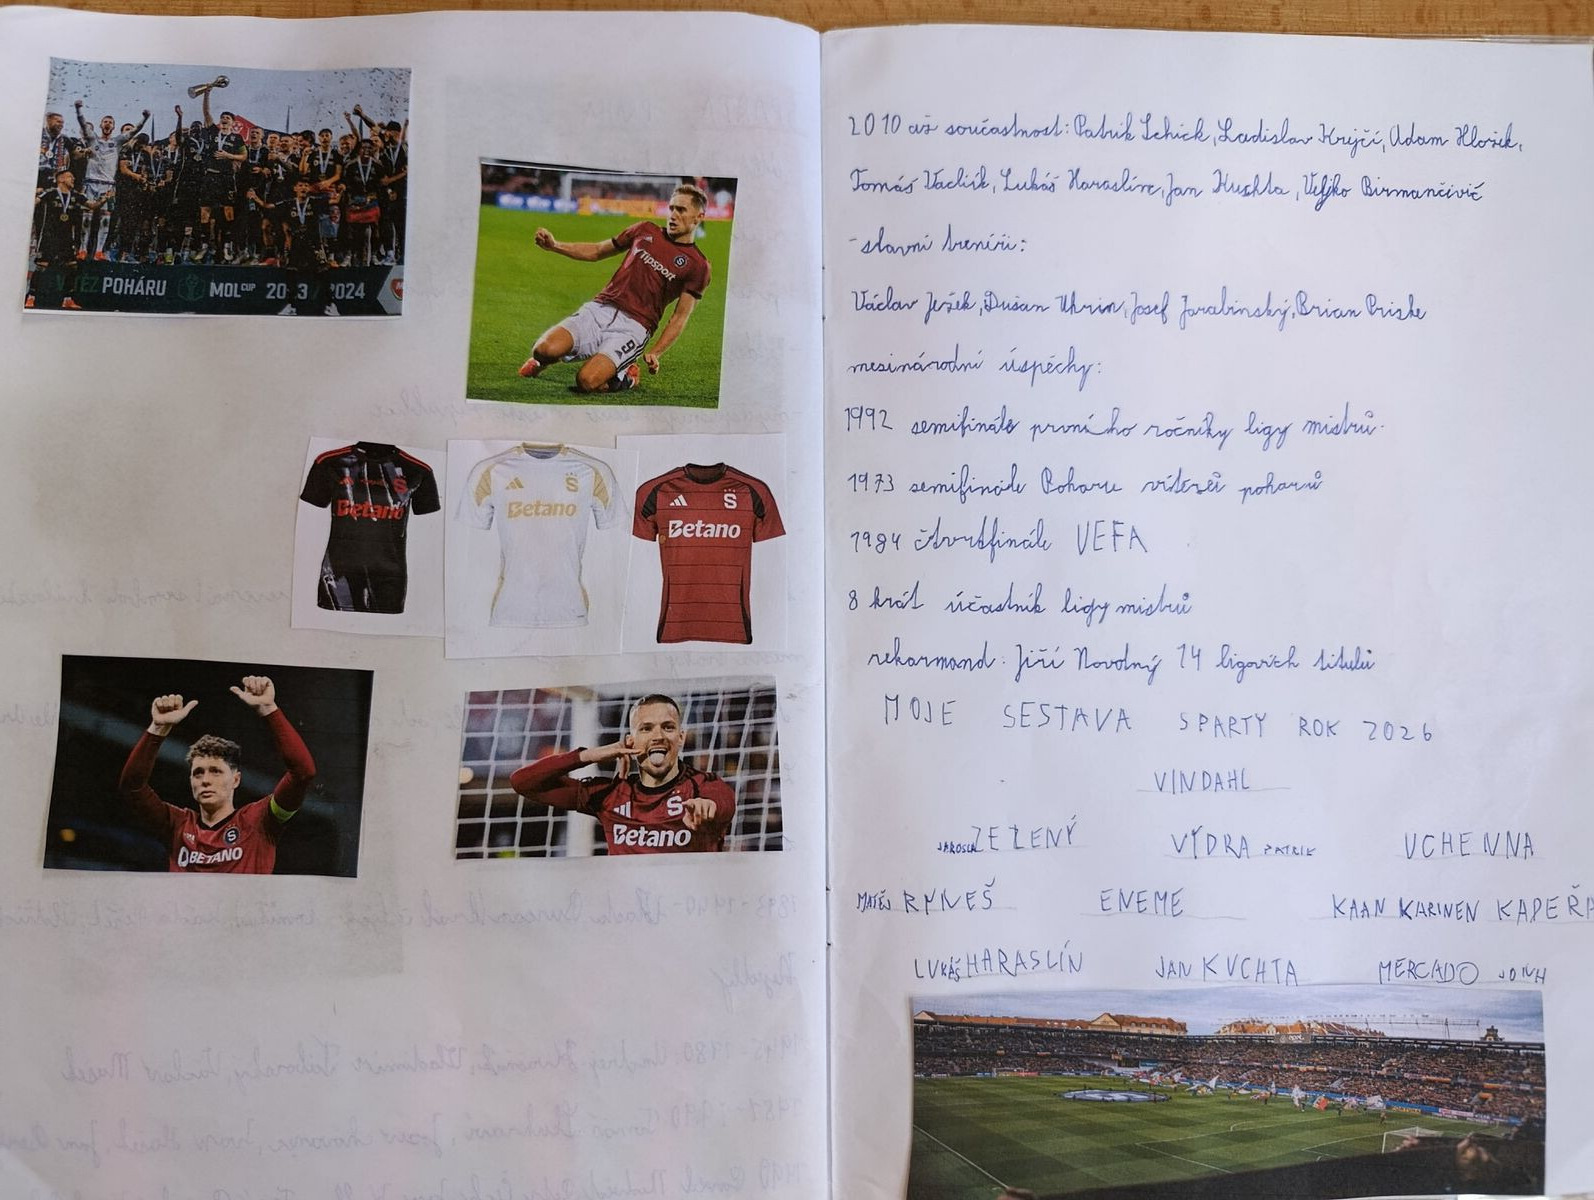 VÍTĚZ POHÁRU MOL CUP 2023 / 2024
Tipsport
9
Betano
Betano
Betano
BETANO
Betano
2010 až součastnost: Patrik Schick, Ladislav Krejčí, Adam Hložek,
Tomáš Vaclík, Lukáš Haraslín, Jan Kuchta, Veljko Birmančivič
- slavní trenéři:
Václav Ježek, Dušan Uhrin, Josef Jarabinský, Brian Priske
mesinárodní úspěchy:
1992 semifinále prvního ročníky ligy mistrů.
1973 semifinále Poharu vítězů poharů
1984 čtvrtfinále UEFA
8 krát účastník ligy mistrů
rekormand: Jiří Novotný 14 ligovích titulů
MOJE SESTAVA SPARTY ROK 2026
VINDAHL
JAROSLAV ZELENÝ VÝDRA PATRIK UCHENNA
MATĚJ RYNEŠ ENEME KAAN KARINEN KADEŘA
LUKÁŠ HARASLÍN JAN KUCHTA MERCADO JOHN